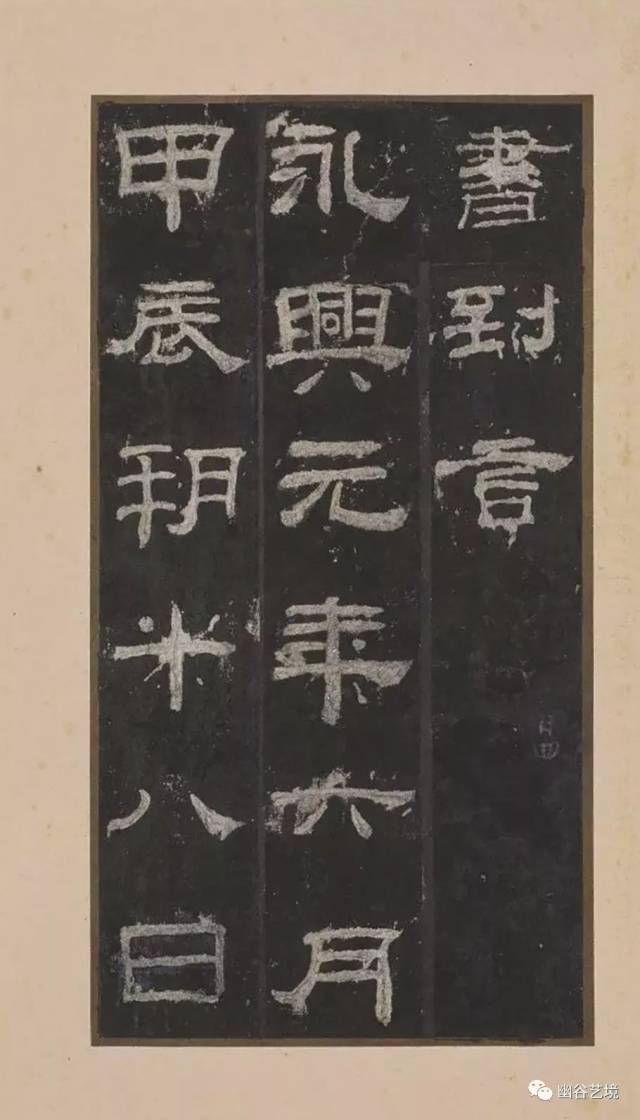 書到言
永興元年六月
甲辰朔十八日
幽谷艺境